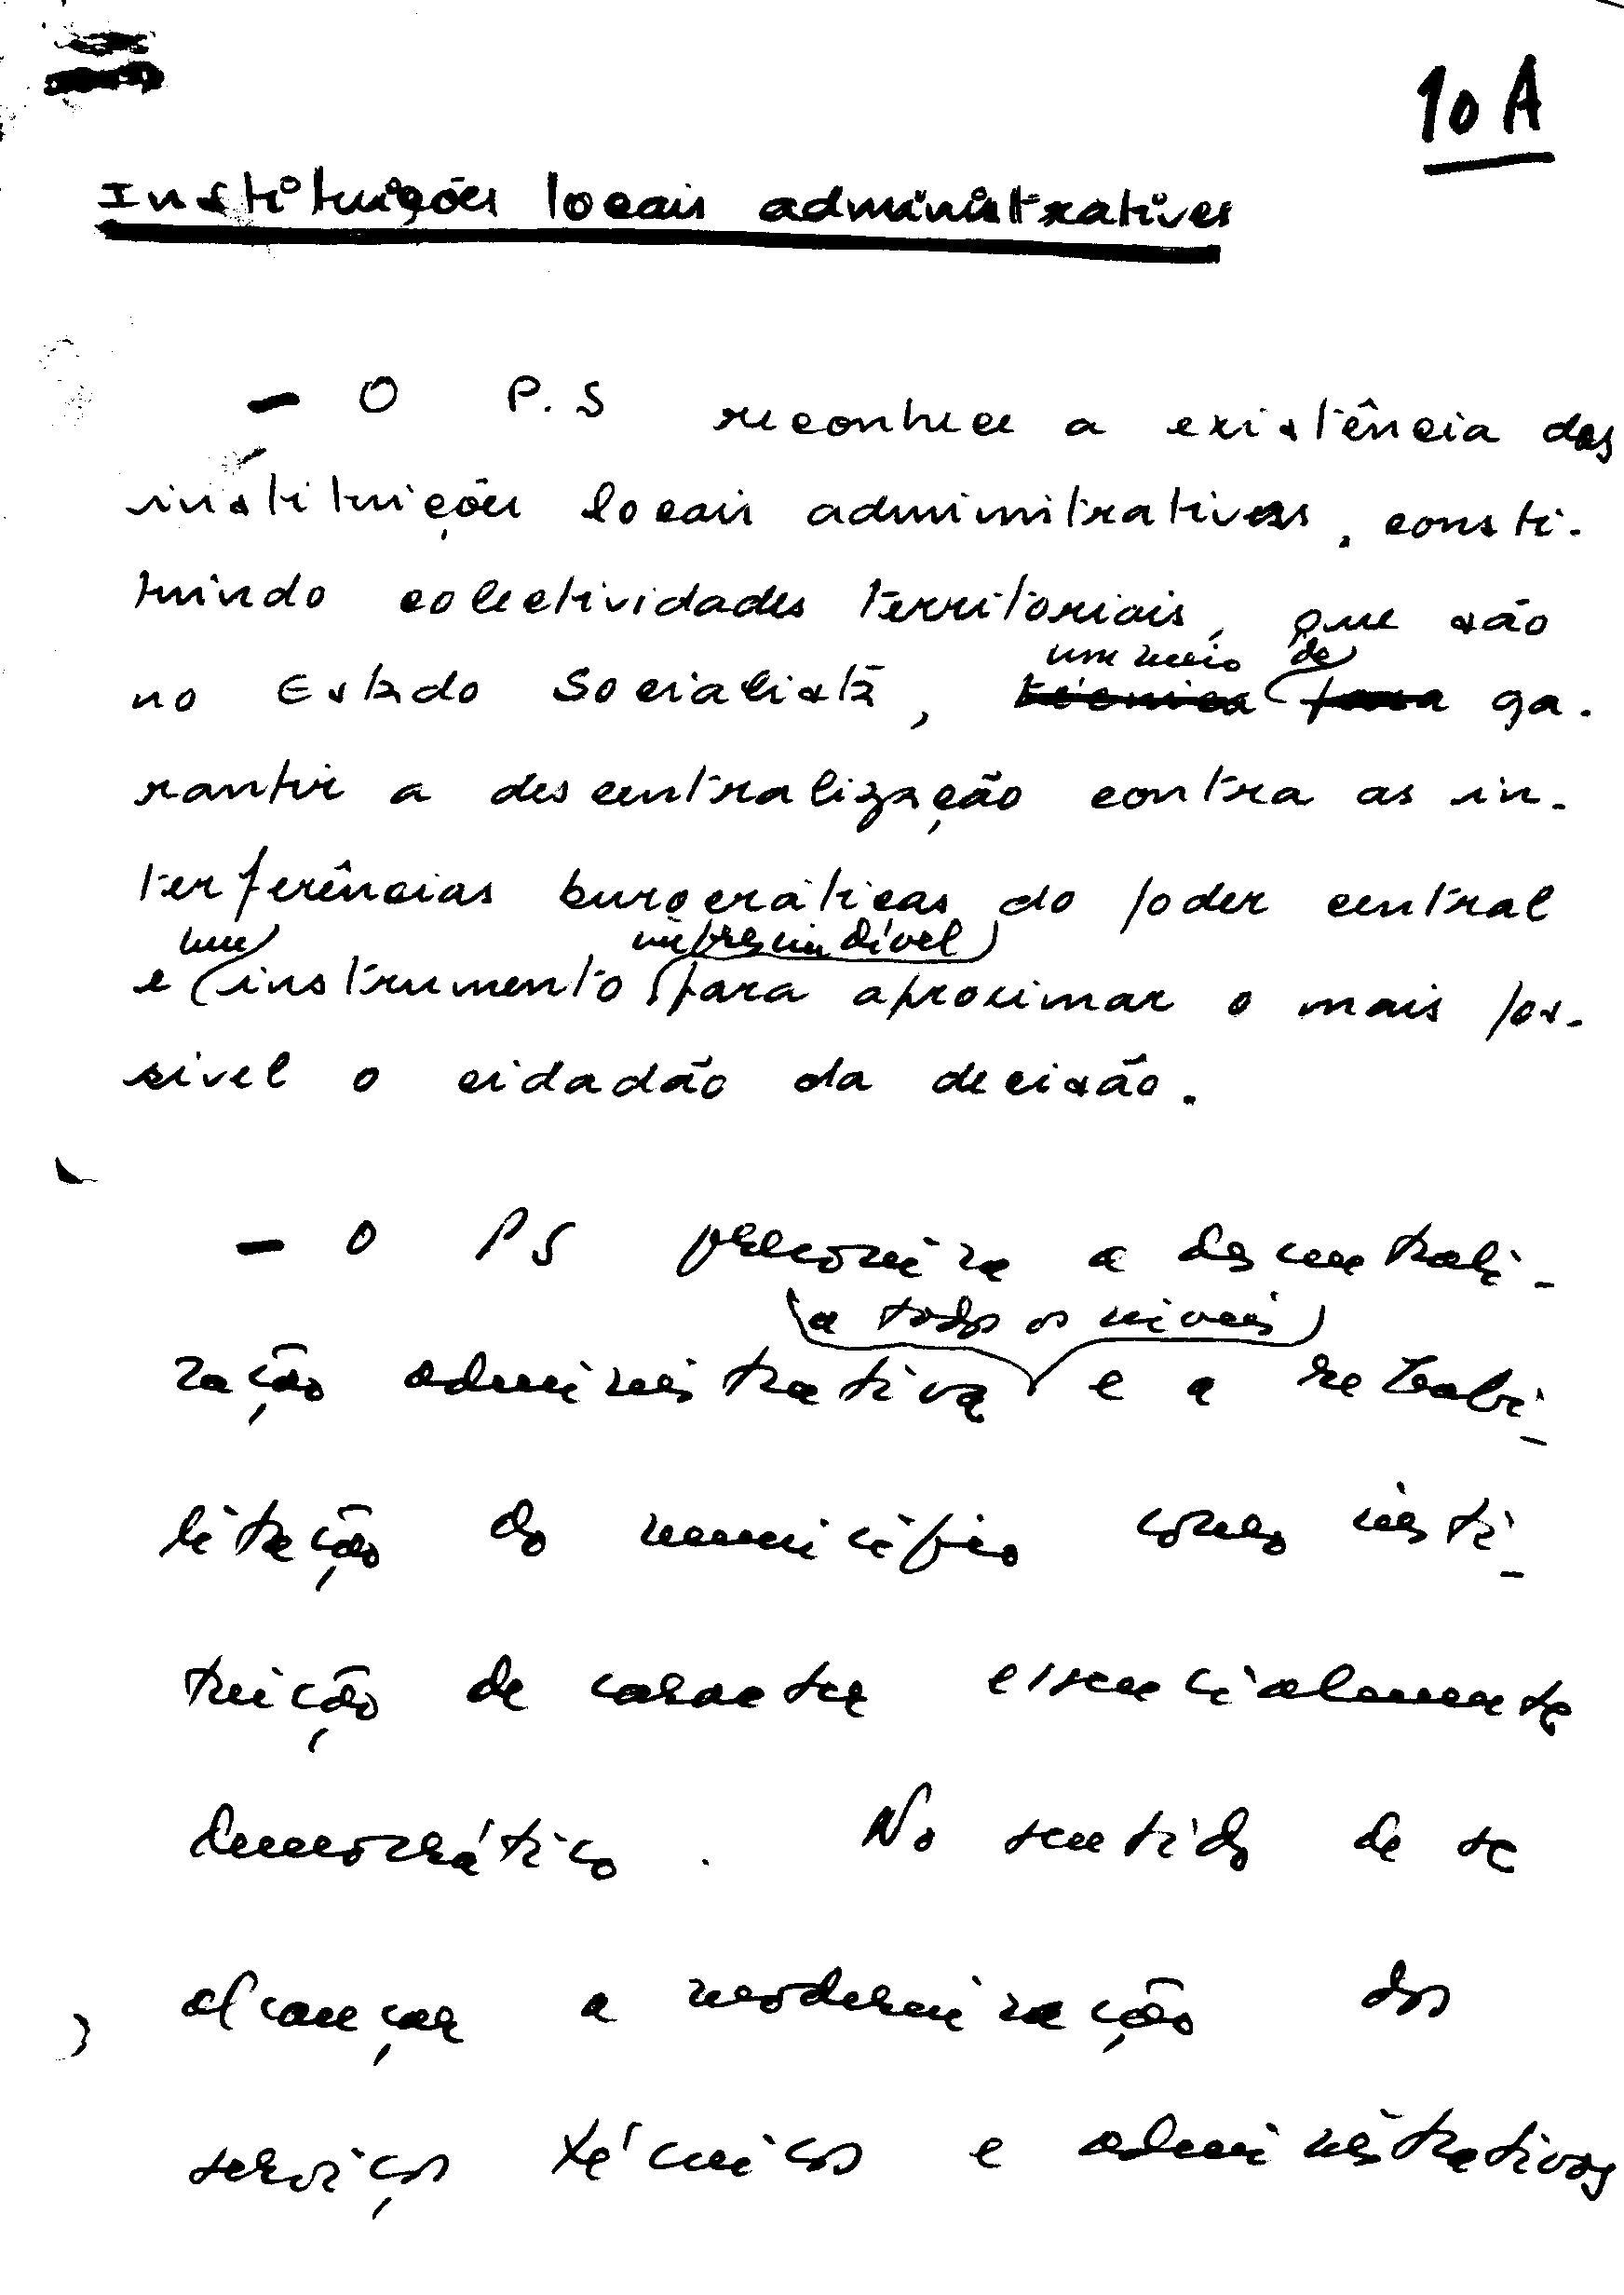 10 A
Instituições locais administrativas
- O P.S reconhece a existência das
instituições locais administrativas, consti-
tuindo colectividades territoriais, que são
um meio de
no Estado Socialista, técnica para ga-
rantir a descentralização contra as in-
terferências burocráticas do poder central
um imprescindível
e instrumento para aproximar o mais pos-
sivel o cidadão da decisão.
- O PS preconiza a descentrali-
a todos os niveis
zação administrativa e a reabi-
litação do municipio como insti-
tuição de caracter essencialmente
democrático. No sentido de se
alcançar a modernização dos
serviços técnicos e administrativos